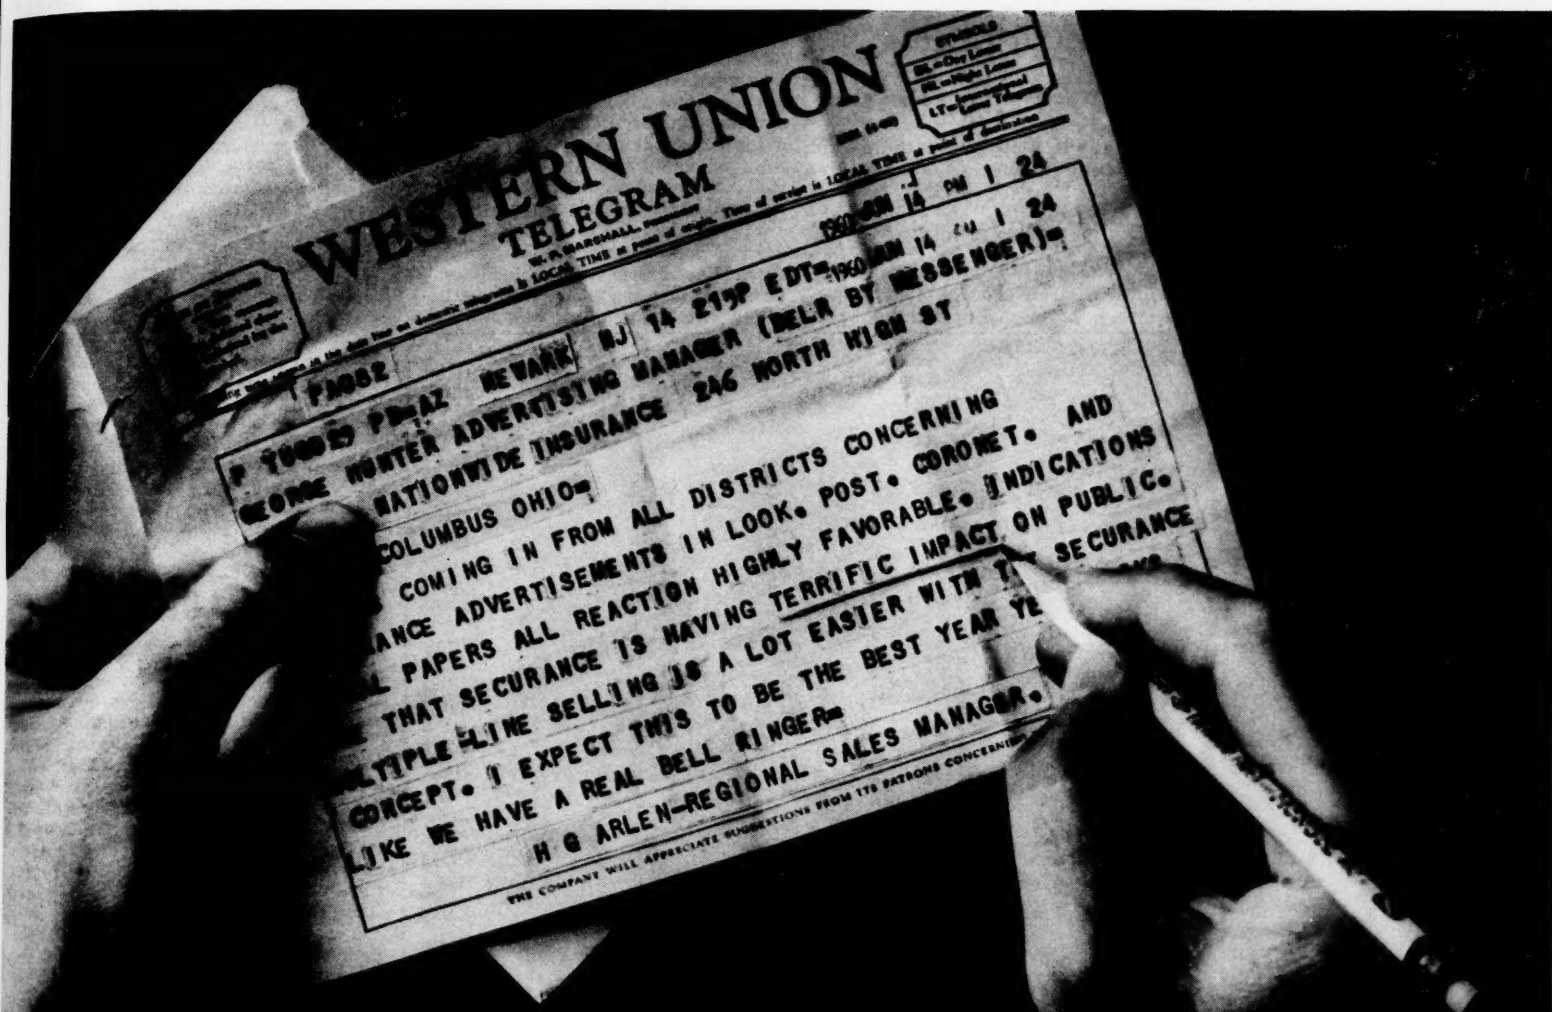 WESTERN UNION
TELEGRAM
W. P. MARSHALL, PRESIDENT
SYMBOLS
DL=Day Letter
NL=Night Letter
LT=International Letter Telegram
LOCAL TIME at point of origin. Time of receipt is LOCAL TIME at point of destination
1960 JUN 14 PM 1 24
PA082
NEWARK NJ 14 215P EDT= 1960 JUN 14 1 24
GEORGE HUNTER ADVERTISING MANAGER (DELR BY MESSENGER)=
NATIONWIDE INSURANCE 246 NORTH HIGH ST
COLUMBUS OHIO=
COMING IN FROM ALL DISTRICTS CONCERNING
ANCE ADVERTISEMENTS IN LOOK. POST. CORONET. AND
L PAPERS ALL REACTION HIGHLY FAVORABLE. INDICATIONS
THAT SECURANCE IS HAVING TERRIFIC IMPACT ON PUBLIC.
LTIPLE-LINE SELLING IS A LOT EASIER WITH SECURANCE
CONCEPT. I EXPECT THIS TO BE THE BEST YEAR YE
LIKE WE HAVE A REAL BELL RINGER=
H G ARLEN-REGIONAL SALES MANAGER.
THE COMPANY WILL APPRECIATE SUGGESTIONS FROM ITS PATRONS CONCERNING